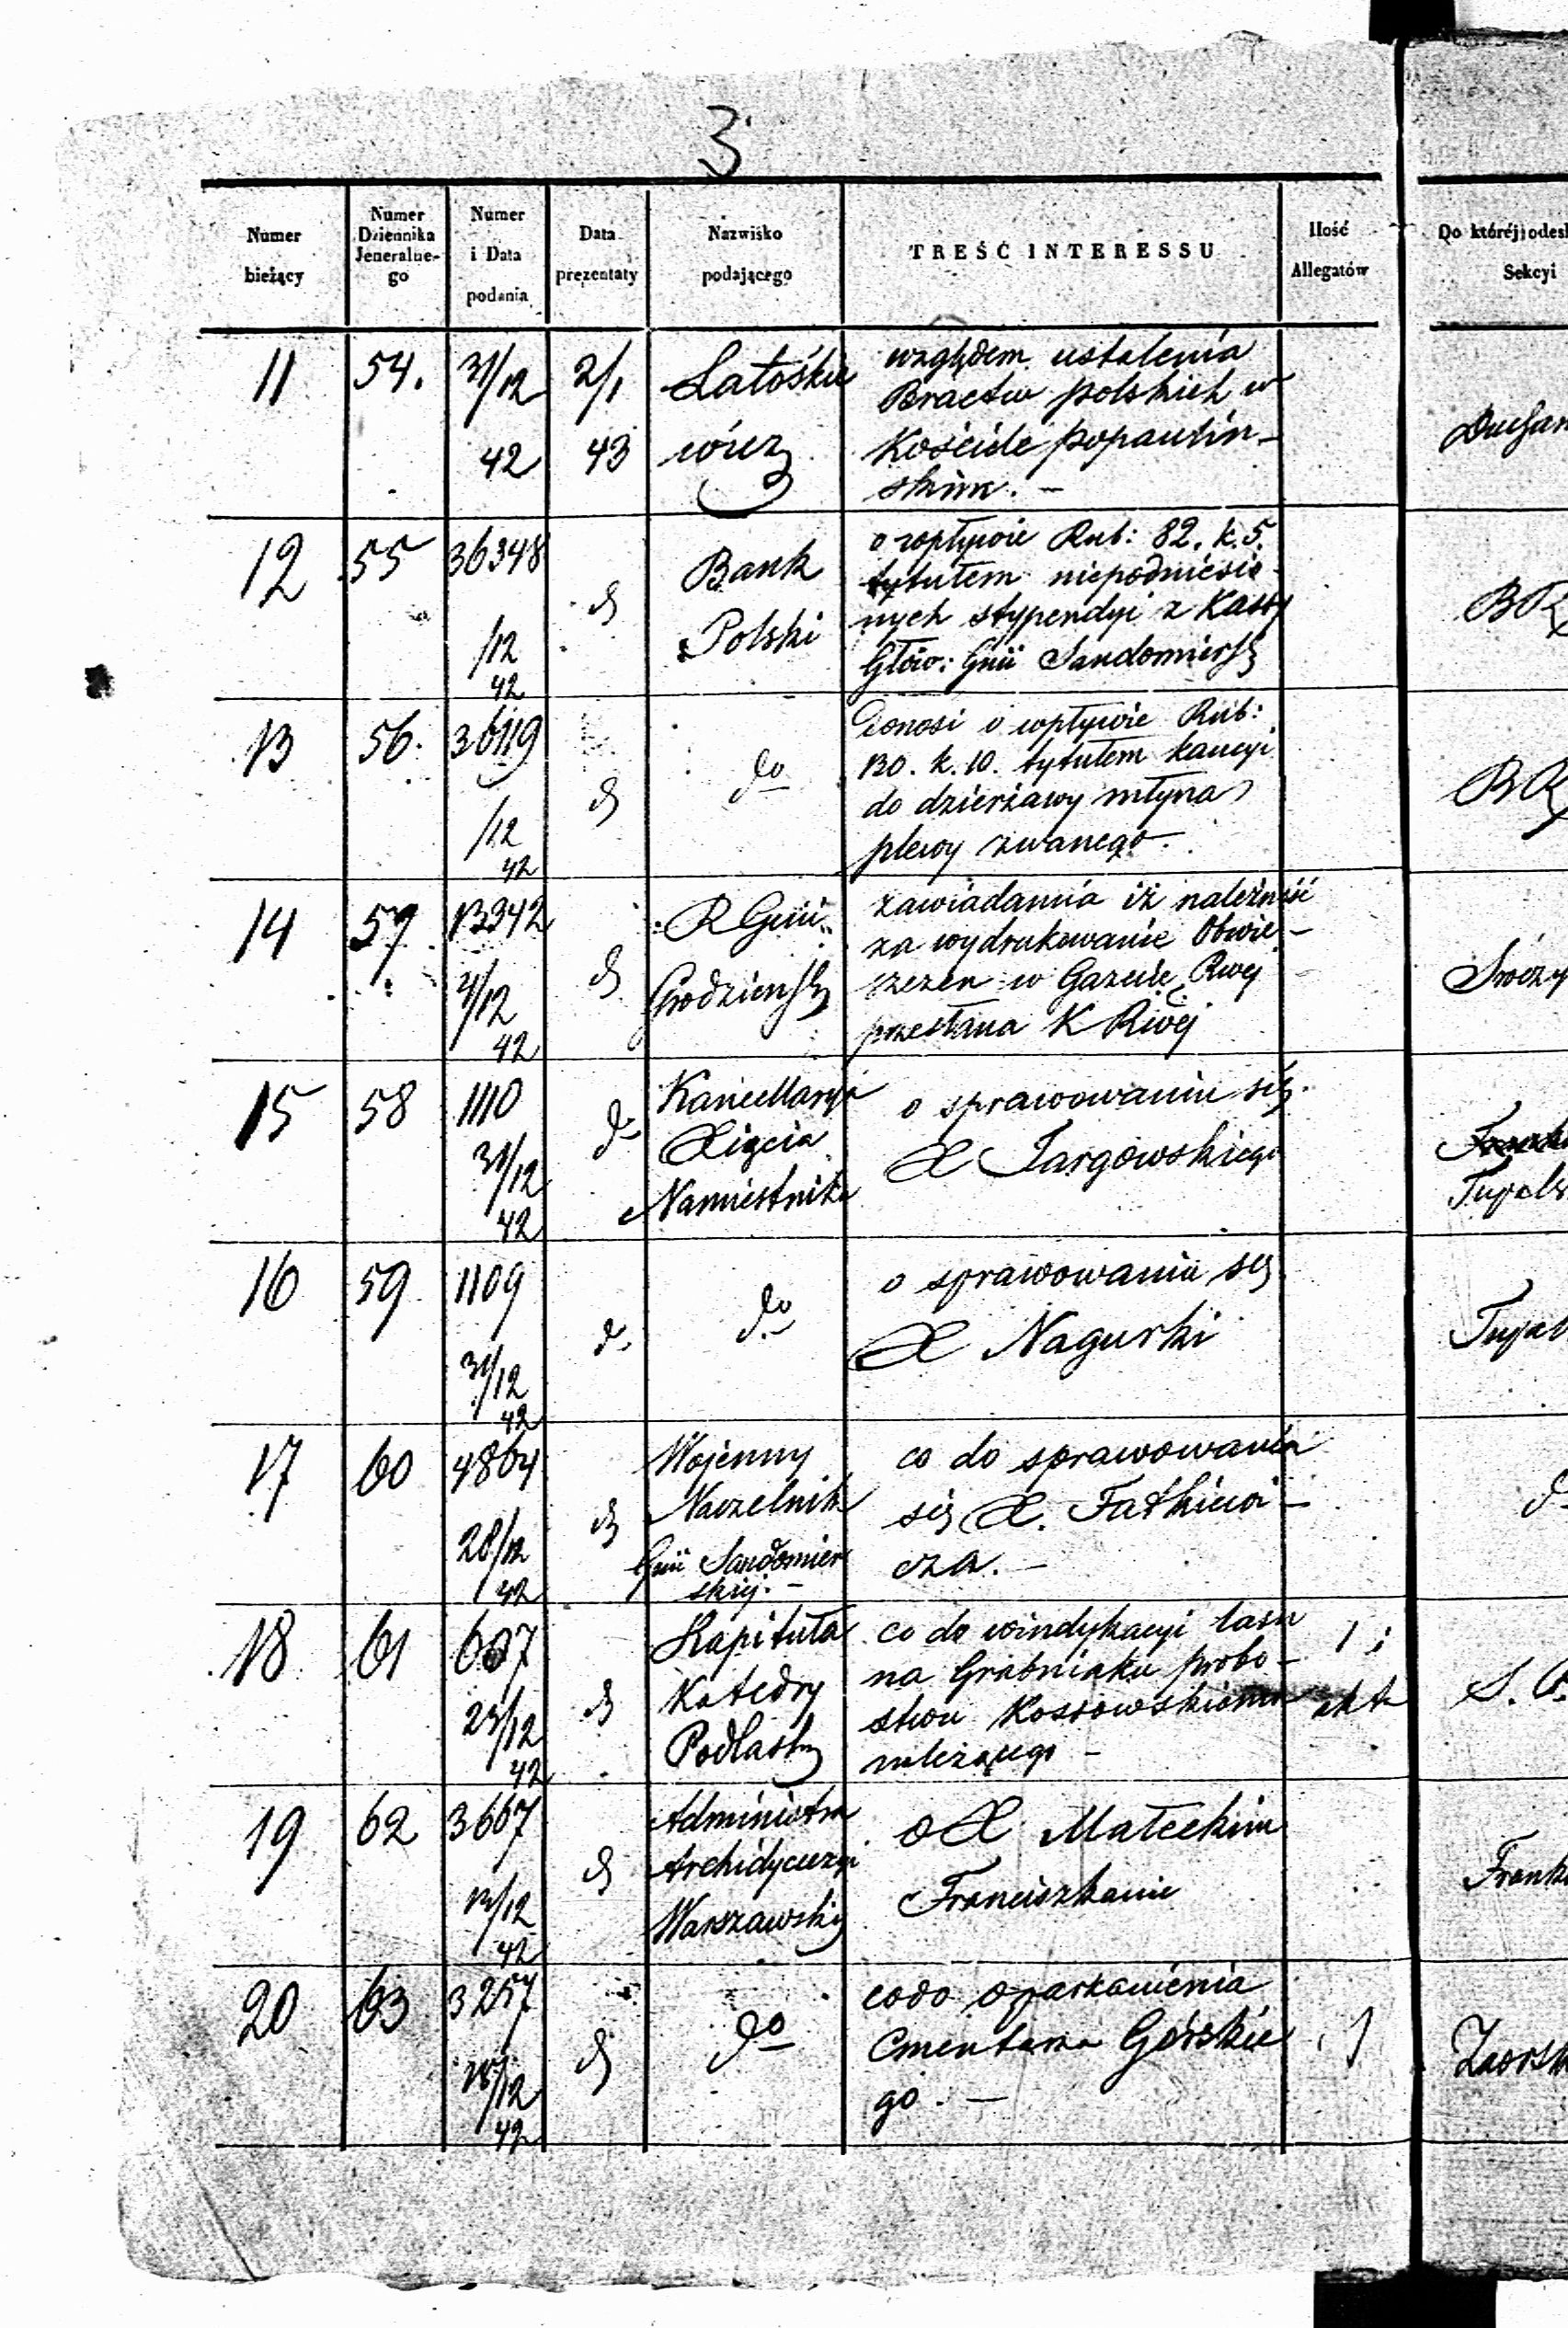 3
Numer bieżący
Numer Dziennika Jeneralnego
Numer i Data podania
Data prezentaty
Nazwisko podającego
TREŚĆ INTERESSU
Ilość Allegatów
Do któréj odesł
Sekcyi
11 54. 31/12 42 2/1 43
Latośkie
wicz
względem ustalenia
Bractw polskich w
Kościele popaulin-
skim. -
12 55 36348 /12 42
Bank
Polski
o wpływie Rub: 82. k. 5.
tytułem niepodniesio-
nych stypendyi z Kassy
Głów: Gnii Sandomiersk
BR
13 56. 36119 /12 42
do
donosi o wpływie Rub:
130. k. 10. tytułem kaucyi
do dzierżawy młyna
plewy zwanego.
BR
14 57 13342 /12 42
R Gnii
Grodziensk
zawiadamia iż należność
za wydrukowanie Obwie-
szczen w Gazecie Rwej
przesłana K Rwej
15 58 1110 31/12 42 do
Kancellarya
Xięcia
Namiestnika
o sprawowaniu się
X Targowskiego
16 59 1109 31/12 42
do
o sprawowaniu się
X Nagurki
17 60 4864 28/12 42
Wojenny
Naczelnik
Gnii Sandomier
skiej. -
co do sprawowania
się X. Fatkiewi-
cza. -
18 61 607 23/12 42
Kapituła
Katedry
Podlask
co do windykacyi lasu
na Grabniaku probo-
stwu Kossowskiemu
należącego -
1
akta
19 62 3667 /12 42
Administra
Archidyecezyi
Warszawskiej
o X Małeckim
Franciszkanie
20 63 3257 /12 42
do
codo oparkanienia
Cmentarza Górskie
go. -
1